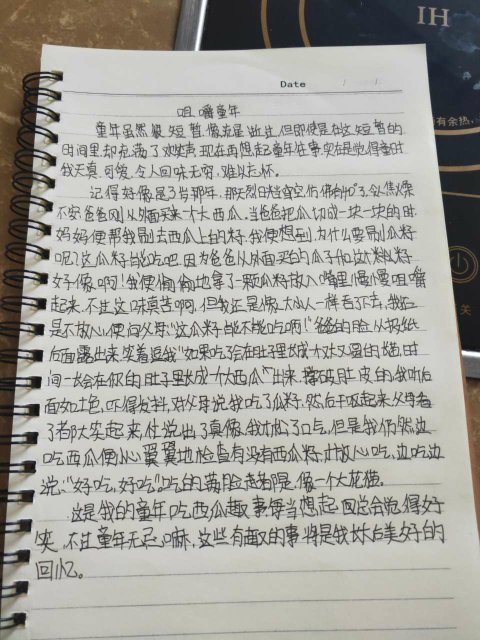 IH
Date
有余热
关
咀嚼童年
童年虽然很短暂,像流星逝过,但即使是在这短暂的
时间里却充满了欢笑声,现在再想起童年往事实在是觉得童时
我天真,可爱,令人回味无穷,难以忘怀。
记得好像是3岁那年,那天烈日当空,仿佛
不安,爸爸则从外面买来一个大西瓜。当爸爸把瓜切成一块一块的时
妈妈便帮我剔去西瓜上的籽,我便想到,为什么要剔瓜籽
呢?这瓜籽能吃吧,因为爸爸从外面买的瓜子和这次瓜籽
好像啊!我便偷偷地拿了一颗瓜籽放入嘴里慢慢咀嚼
起来,不过这味真苦啊,但我还是像大人一样吞下去,我还
是不放心,便问父母"这瓜籽能不能吃啊!"爸爸的脸从报纸
后面露出来笑着逗我"如果吃了会在肚子里长成一个又大又圆的
间一长会在你的肚子里长成一个大西瓜"出来撑破肚皮的,我听后
面如土色,吓得发抖,对父母说我吃了瓜籽,然后
了都大笑起来,才说出了真像,我才松了口气,但是我仍然边
吃西瓜便小心翼翼地检查有没有西瓜籽,才放心吃,边吃边
说:"好吃,好吃"吃的满脸老都是,像一个大花猫。
这是我的童年吃西瓜趣事每当想起回总会觉得好
笑,不过童年无忌嘛,这些有趣的事将是我长大后美好的
回忆。